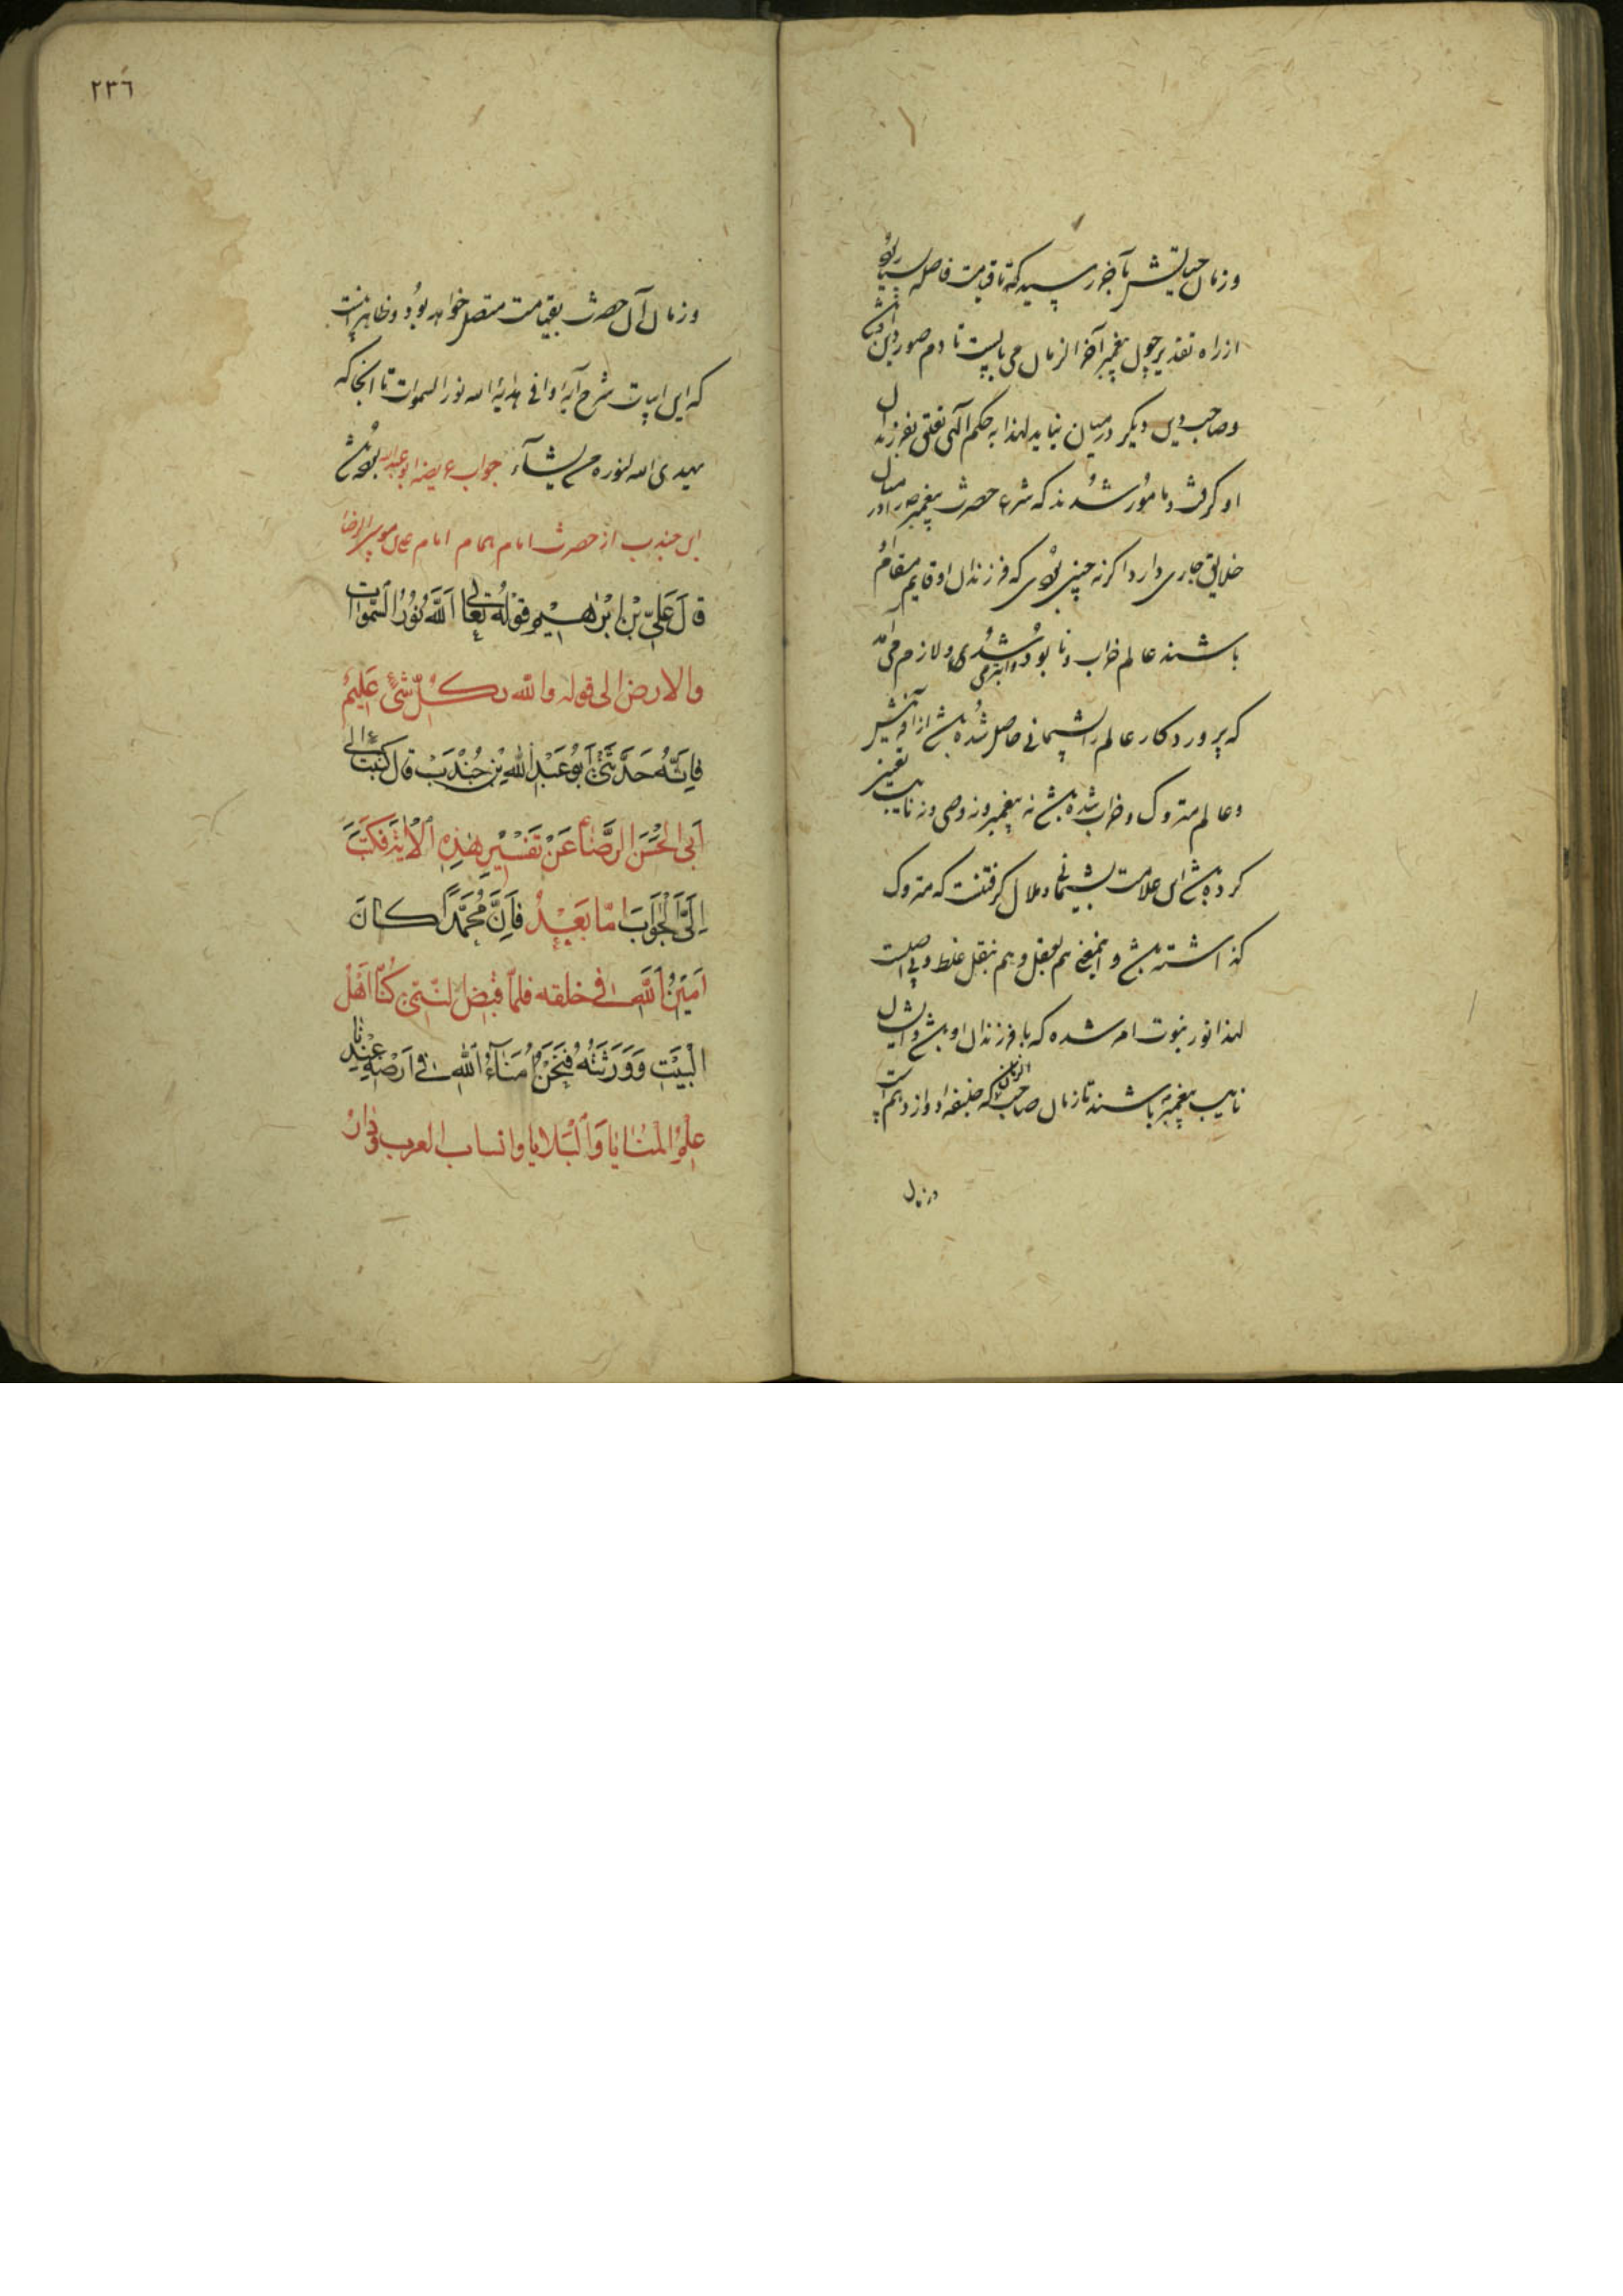 وزمان حیاتش بآخر رسید که تا قیامت فاصله بسیار بود
از راه تقدیر چون پیغمبر آخر الزمان می بایست تا دم صور دین
وصاحب دین دیکر در میان نیاید لهذا به حکم الهی تعلق بفرزندان
او کرفت و مامور شدند که شرع حضرت پیغمبر را در میان
خلایق جاری دارد اکرنه چنین بودی که فرزندان او قایم مقام او
باشند عالم خراب و نابود و ابتر می شدی و لازم می امد
که پروردکار عالم را پشیمانی حاصل شده باشد از آفرینش
وعالم متروک و خراب شده باشد نه پیغمبر و نه وصی و نه نایب تعیین
کرده باشد این علامت پشیمانی و ملال کرفتنست که متروک
کذاشته باشد و اینمعنی هم بعقل و هم بنقل غلط و بی اصلست
لهذا نور نبوت امر شده که با فرزندان او باشد و ایشان
نایب پیغمبر باشند تا زمان صاحب الزمان که خلیفه دوازدهم است
در زمان
٢٣٦
وزمان آن حضرت بقیامت متصل خواهد بود و ظاهر است
که این ابیات شرح آیه وافی هدایه الله نور السموات تا انجا که
یهدی الله لنوره من یشآء جواب عریضه ابو عبدالله
ابن جندب از حضرت امام همام امام علی موسی الرضا
قال عَلِیّ بْن اِبْرٰهیم قَوْلُهُ تَعٰالی اَللّٰهُ نُوْرُ السَّمٰوات
والارض الی قوله والله بکُلّ شئ عَلیمٌ
فاِنَّهُ حَدَّثَنی اَبُو عَبْدِ اللهِ بْنِ جُنْدَب قال کتبت الی
اَبی الْحَسَن الرِّضٰا ع عَنْ تَفْسیْرِ هٰذِهِ الْاٰیَةِ فَکَتَبَ
اِلَیَّ الْجَوٰابَ اَمّا بَعْدُ فَاِنَّ مُحَمَّداً کانَ
اَمیْنُ اللّٰهِ فی خلقه فلمّا قبض النّبیّ کُنّا اَهْلَ
الْبَیْتِ وَوَرَثَتَهُ فَنَحْنُ اُمَنآءُ اللّٰهِ فی اَرْضِهِ عِنْدنا
عِلْمُ الْمَنٰایا وَالْبَلایا وانساب العرب